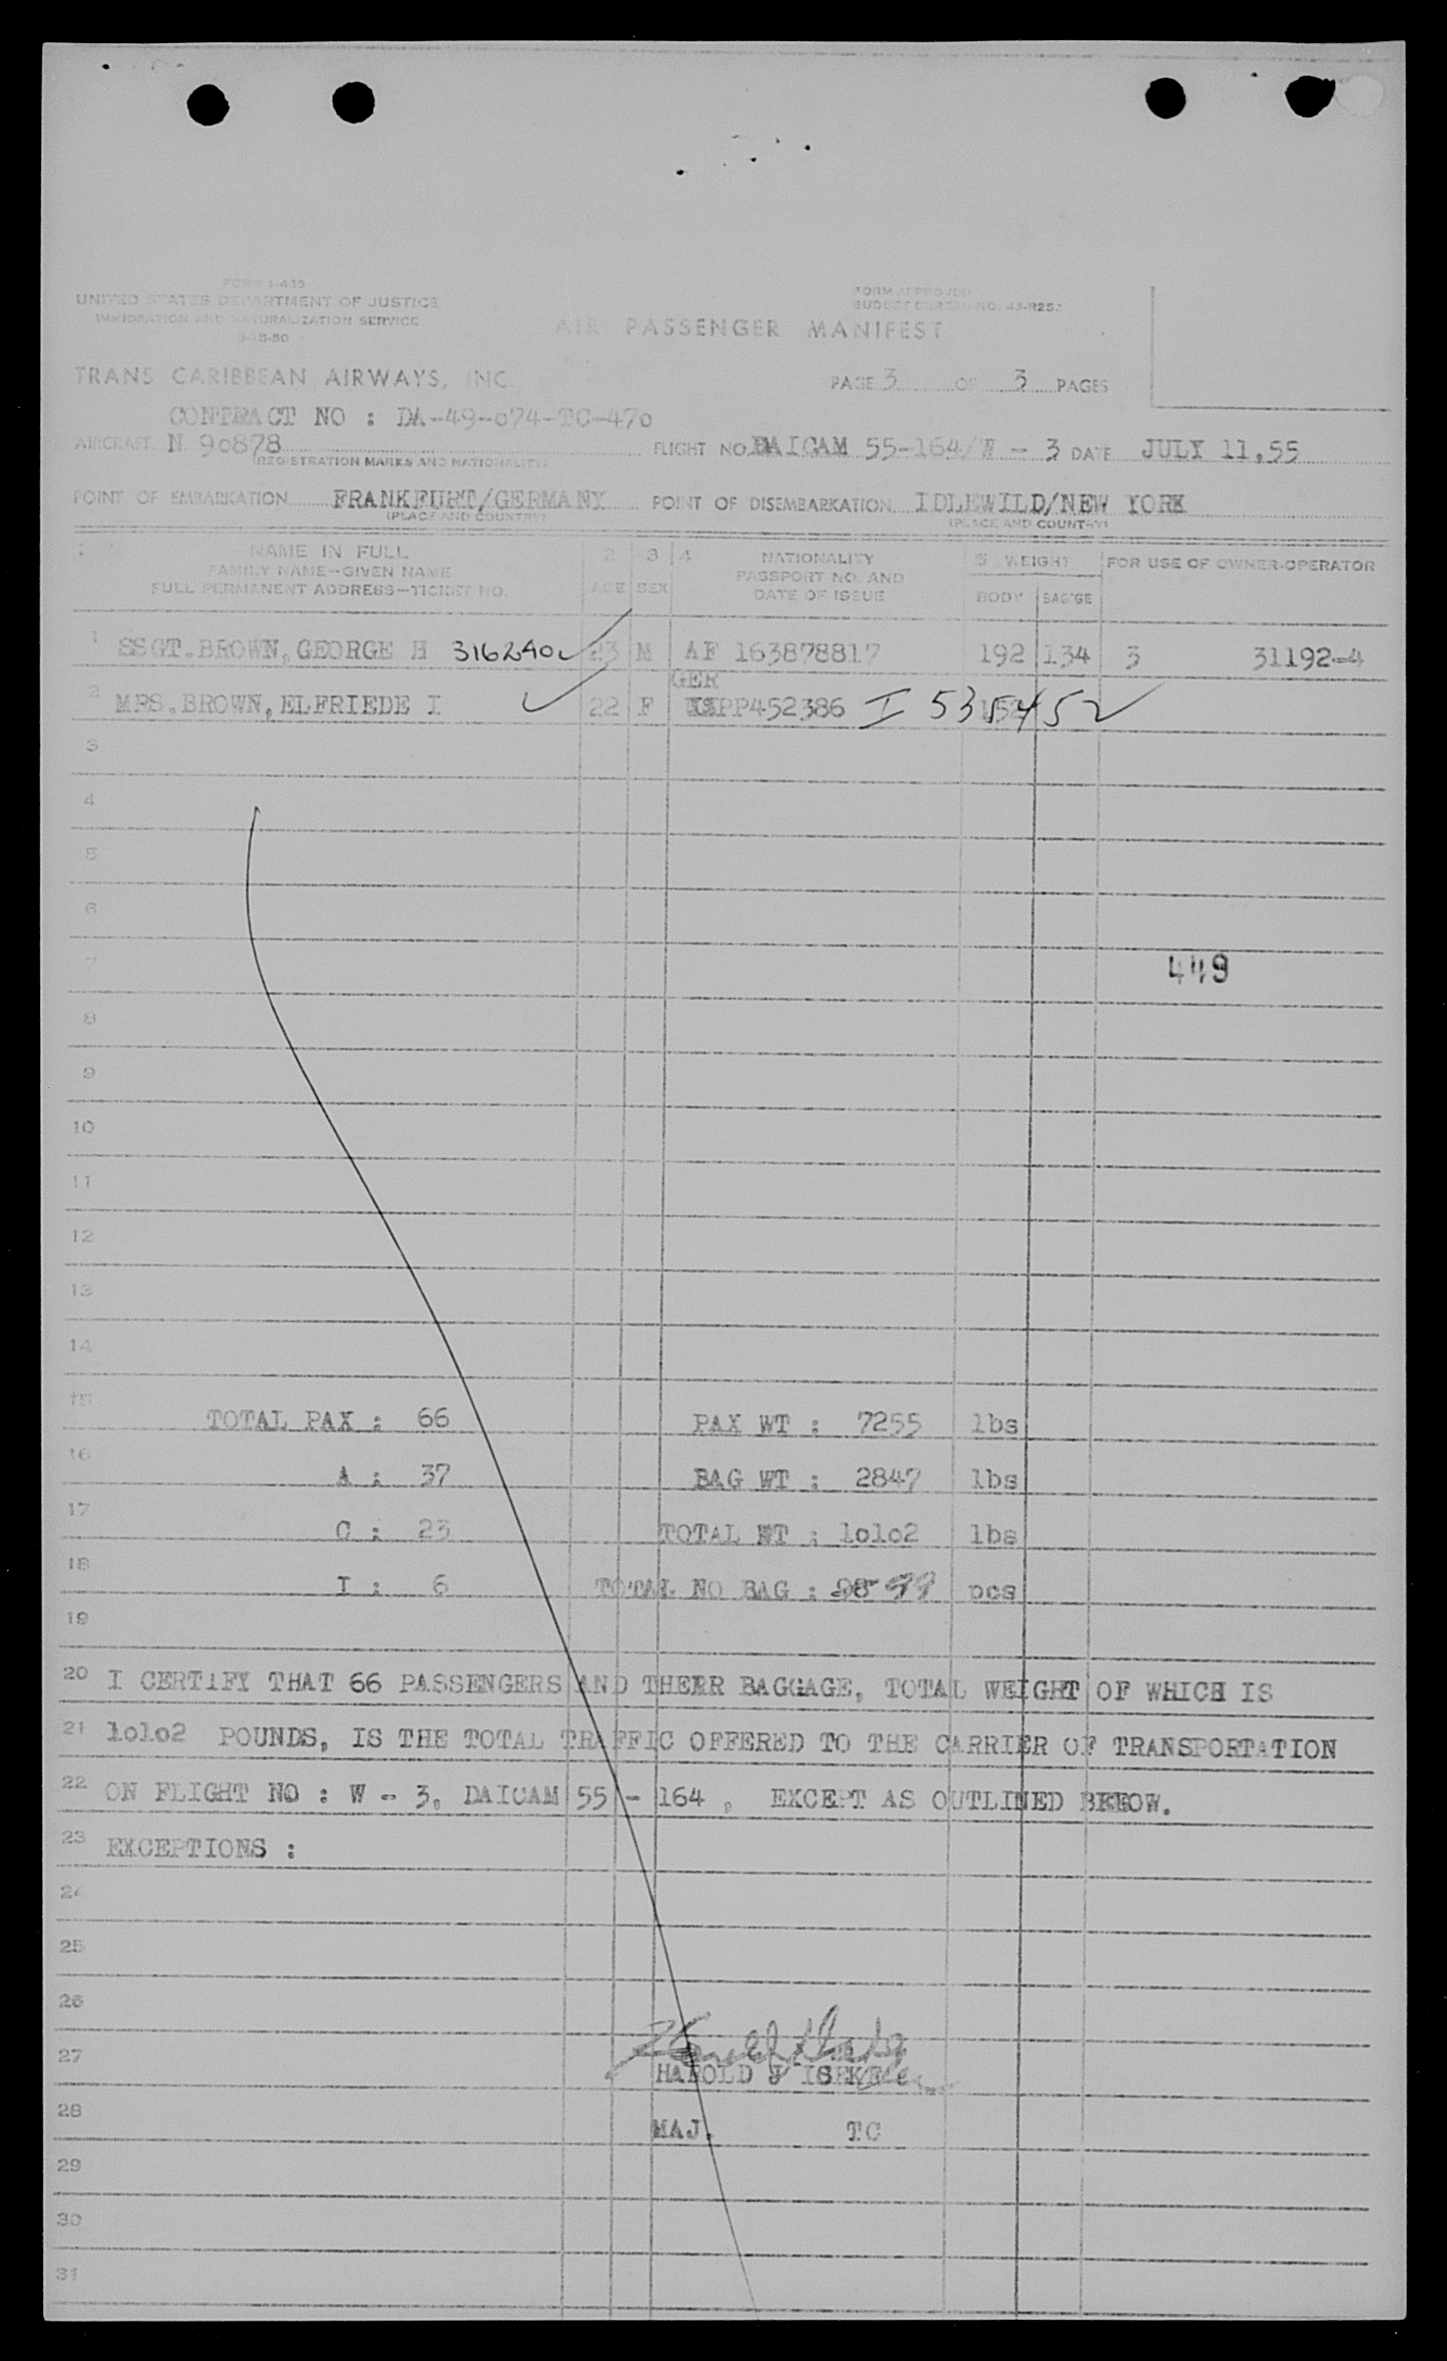 FORM I-415
UNITED STATES DEPARTMENT OF JUSTICE
IMMIGRATION AND NATURALIZATION SERVICE
FORM APPROVED
BUDGET BUREAU NO. 43-R252
AIR PASSENGER MANIFEST
TRANS CARIBBEAN AIRWAYS, INC.
PAGE 3 OF 3 PAGES
CONTRACT NO : DA-49-o74-TC-47o
AIRCRAFT N 9o878 FLIGHT NO. DAICAM 55-164/W - 3 DATE JULY 11,55
(REGISTRATION MARKS AND NATIONALITY)
POINT OF EMBARKATION FRANKFURT/GERMANY POINT OF DISEMBARKATION IDLEWILD/NEW YORK
(PLACE AND COUNTRY) (PLACE AND COUNTRY)
NAME IN FULL 2 3 4 NATIONALITY 5 WEIGHT FOR USE OF OWNER-OPERATOR
FAMILY NAME-GIVEN NAME PASSPORT NO. AND
FULL PERMANENT ADDRESS-TICKET NO. AGE SEX DATE OF ISSUE BODY BAG'GE
1 SSGT.BROWN,GEORGE H 316240 23 M AF 163878817 192 134 3 31192-4
GER
2 MRS.BROWN,ELFRIEDE I 22 F PP452386 I 535452
3
4
5
6
7 449
8
9
10
11
12
13
14
15 TOTAL PAX : 66 PAX WT : 7255 lbs
16 A : 37 BAG WT : 2847 lbs
17 C : 23 TOTAL WT : lolo2 lbs
18 I : 6 TOTAL NO BAG : 98 99 pcs
19
20 I CERTIFY THAT 66 PASSENGERS AND THEIR BAGGAGE, TOTAL WEIGHT OF WHICH IS
21 lolo2 POUNDS, IS THE TOTAL TRAFFIC OFFERED TO THE CARRIER OF TRANSPORTATION
22 ON FLIGHT NO : W - 3, DAICAM 55 - 164 , EXCEPT AS OUTLINED BELOW.
23 EXCEPTIONS :
24
25
26
27 HAROLD
28 MAJ. TC
29
30
31